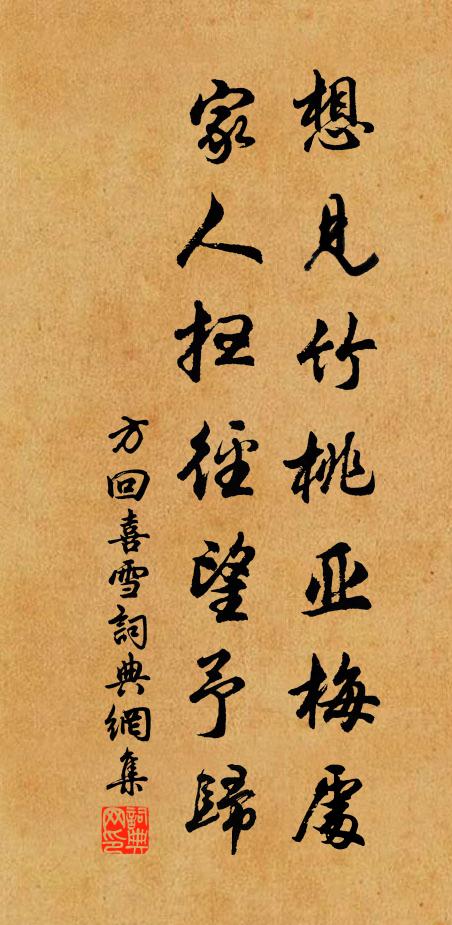 想見竹桃亚梅處
家人扫徑望予歸
方回喜雪詞典網集
詞典网印